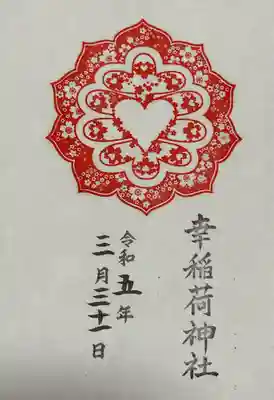 幸稲荷神社
令和五年
三月三十一日